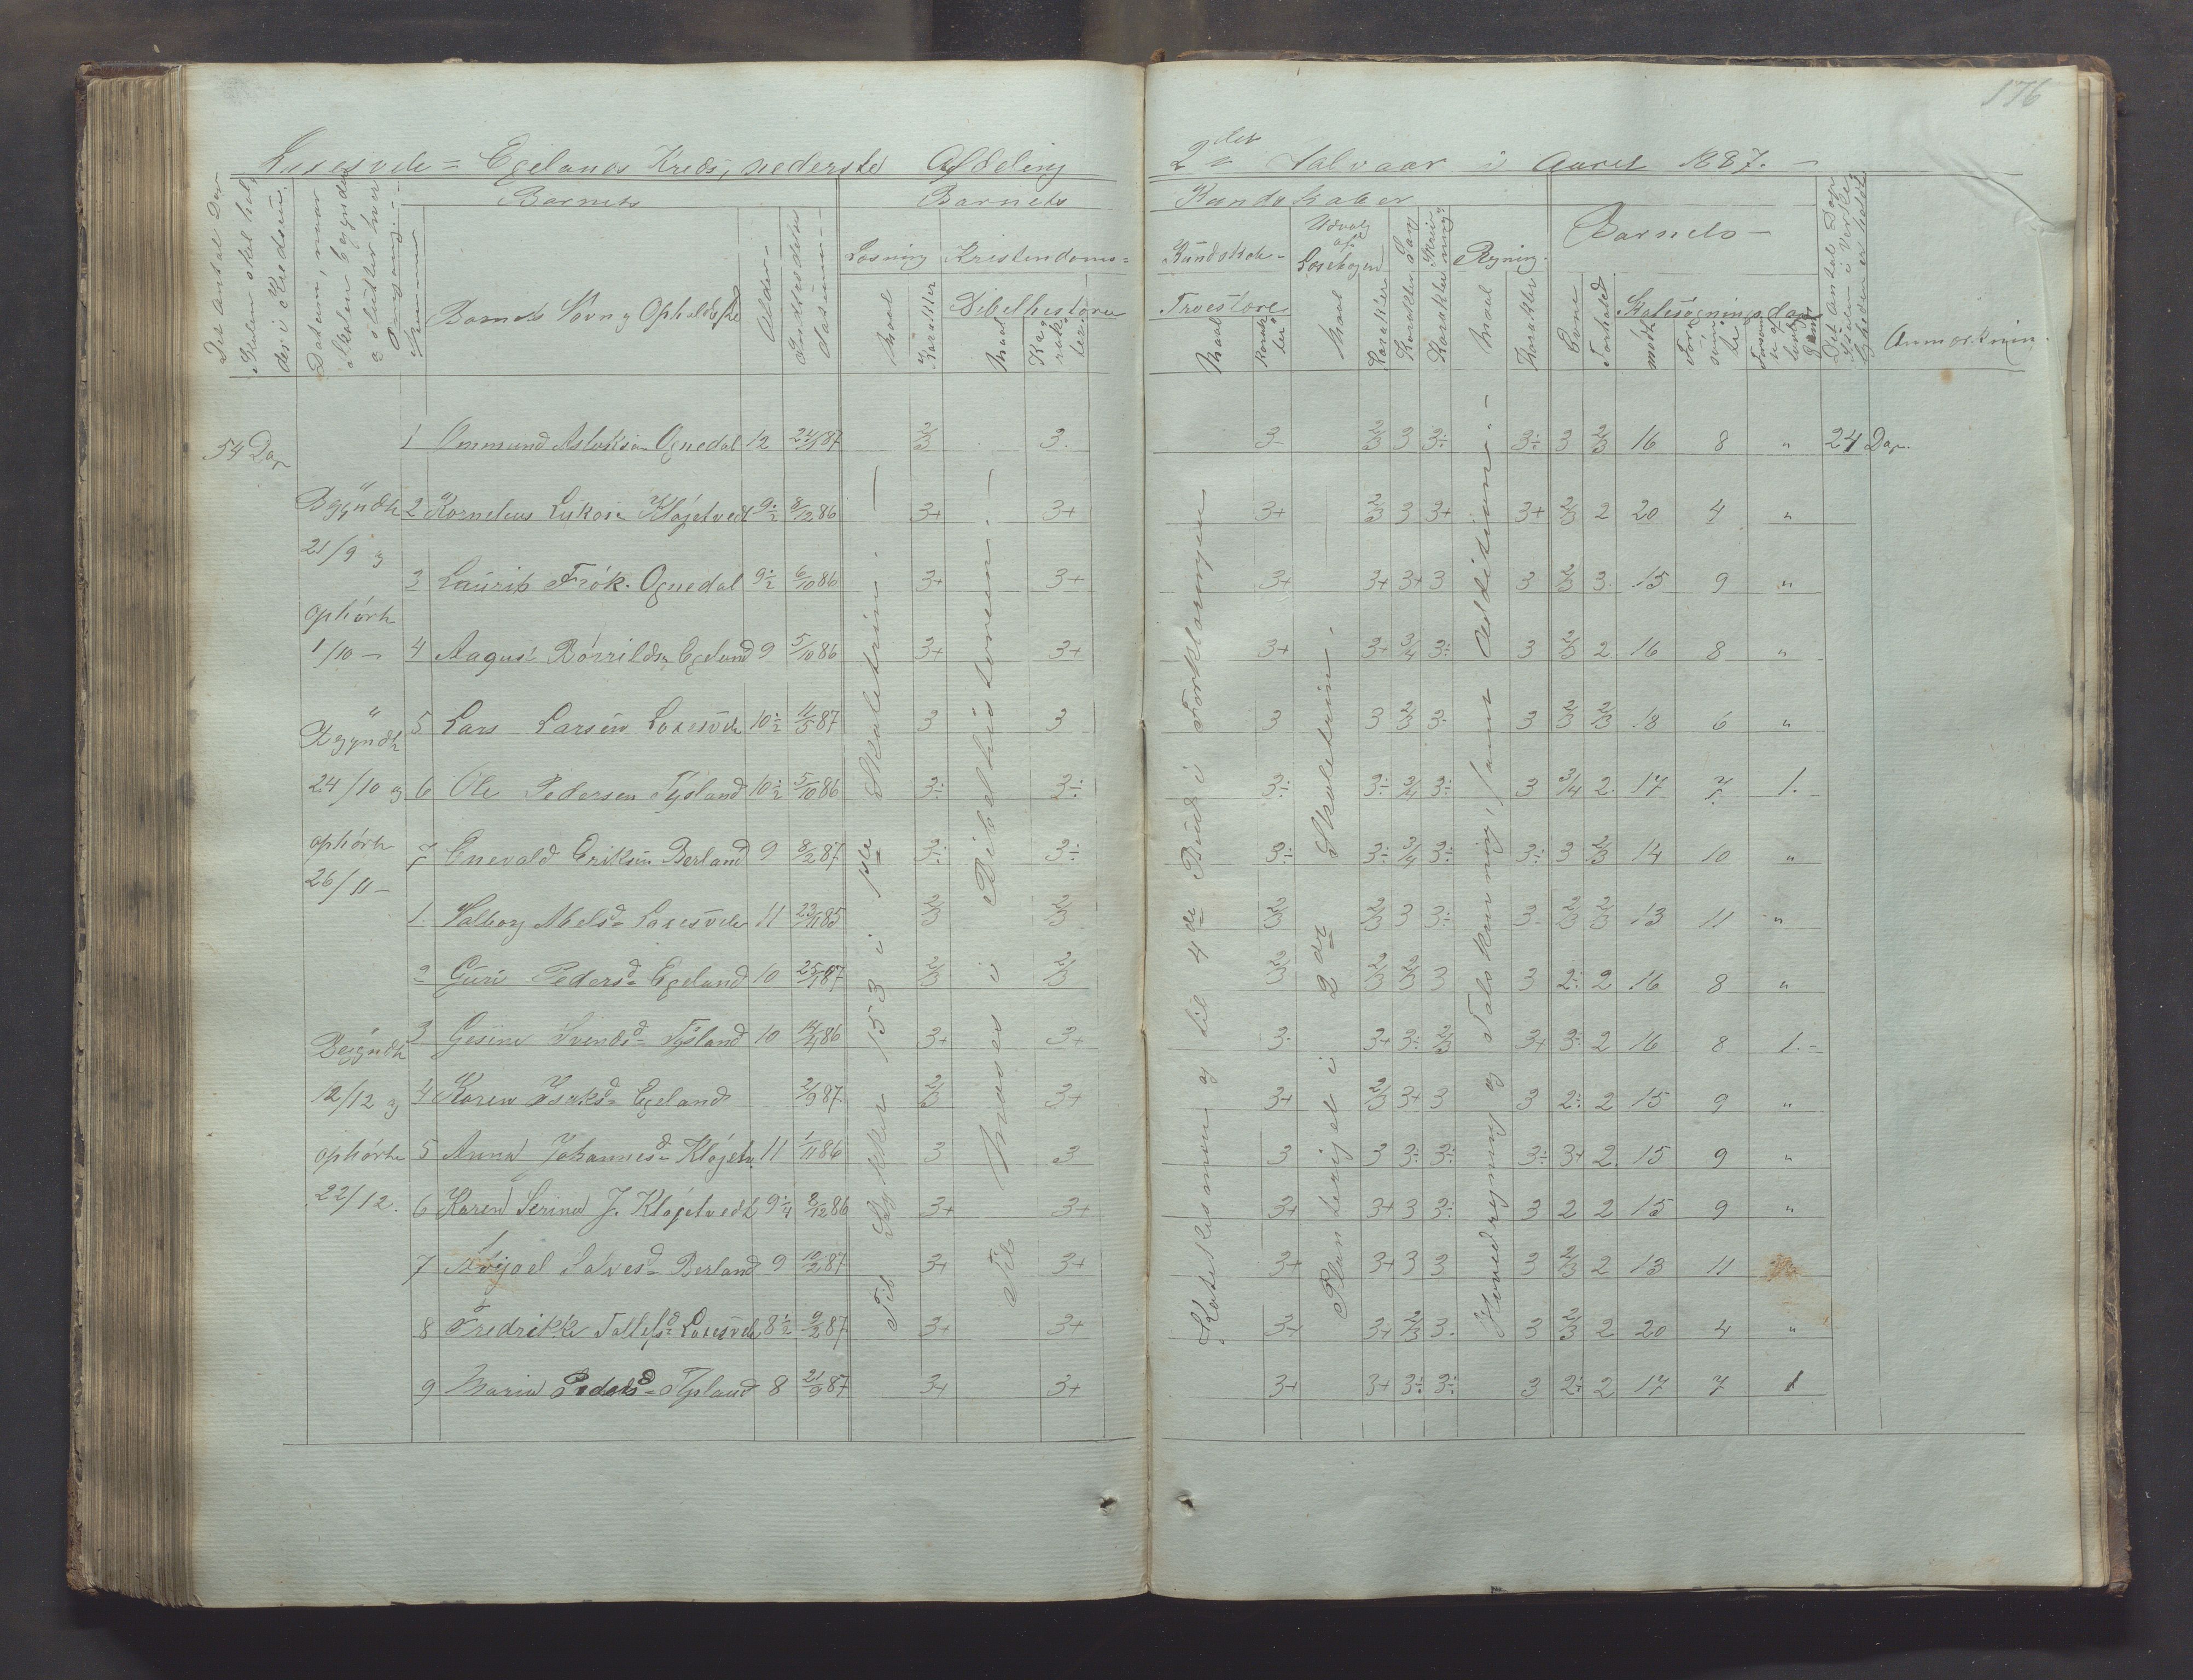 176
Egelands Kreds, nederste Afdeling
2den Halvaar i Aaret 1887. –
Det Antal Dage Skolen skal holdes i Kredsen.
Datum, naar Skolen begynder og slutter hver Omgang. –
Nummer
Barnets
Barnets Navn og Opholdssted
Alder. –
Indtrædelsesdatum –
Barnets
Læsning
Maal
Karakter
Kristendoms=
Bibelhistorie
Maal
Karakter
Kundskaber
Kundskab –
Troeslære
Maal
Karakter
Udvalg af Læsebogen
Maal
Karakter
Karakter Sang
Karakter Skrivning
Regning.
Maal
Karakter
Barnets –
Evne
Forhold
Skolesøgningsdage
mødt
forsømte
Det Antal Dage Skolen i Virkeligheden er holdt
Anmærkning.
54 Dage
1 Ommund Aslaksen Ognedal 12 24/1 87 2/3 3. 3 2/3 3 3÷ 3÷ 3 2/3 16 8 " 24 Dage.
Begyndte 21/9 og ophørte 1/10 –
2 Kornelius Lukasen Kløgetvedt 9 1/2 8/12 86 3+ 3+ 3+ 2/3 3 3+ 3+ 2/3 2 20 4 "
3 Laurits Fr. Ognedal 9 1/2 6/10 86 3+ 3+ 3+ 3+ 3+ 3 3 2/3 3. 15 9 "
4 Aagust Egeland 9 5/10 86 3+ 3+ 3+ 3+ 3/4 3÷ 3 2/3 2 16 8 "
" Begyndte 24/10 og ophørte 26/11 –
5 Lars Larsen 10 1/2 4/5 87 3 3 3 3 2/3 3 3 2/3 2/3 18 6 "
6 Ole Pedersen Tysland 10 1/2 5/10 86 3÷ 3÷ 3÷ 3÷ 3/4 3÷ 3 3/4 2 17 7 1.
7 Enevald Eriksen Berland 9 8/2 87 3÷ 3÷ 3÷ 3÷ 3/4 3÷ 3÷ 3 2/3 14 10 "
1. Valborg Abelsd. 11 23/11 85 2/3 2/3 2/3 2/3 3 3÷ 3 2/3 2/3 13 11 "
2 Guri Pedersd. Egeland 10 25/1 87 2/3 2/3 2/3 2/3 2/3 3 3 2÷ 2 16 8 "
Begyndte 12/12 og ophørte 22/12.
3 Gesine Svendsd. Tysland 10 86 3+ 3+ 3 3+ 3÷ 2/3 3+ 3÷ 2 16 8 1. –
4 Karen Isaksd. Egeland 2/9 87. 2/3 3+ 3+ 2/3 3+ 3 3 2÷ 2 15 9 "
5 Anna Johannesd. Kløgetv. 11 1/11 86 3 3 3 3 3÷ 3÷ 3÷ 3+ 2 15 9 "
6 Karen Serine J. Kløgetvedt 9 1/4 8/12 86 3+ 3+ 3+ 3+ 3 3÷ 3 2 2 15 9 "
7 Salvesd. Berland 9 10/2 87 3+ 3+ 3+ 3+ 3 3 3 2/3 2 13 11
8 Fredrikke Tallefsd. 8 1/2 9/2 87 3+ 3+ 3+ 3+ 2/3 3. 3 2/3 2 20 4 "
9 Maria Pedersd. Tysland 8 21/9 87 3+ 3+ 3+ 3+ 3÷ 3÷ 3 2÷ 2 17 7 1
Til Stykket 153 i 1ste Skoletrin. –
Til Moses i Bibelhistorien. –
Katekismen og til 4de Bud i Forklaringen
Planteriget i 2det Skoletrin. –
Hovedregning og Talskrivning, samt Additionen. –